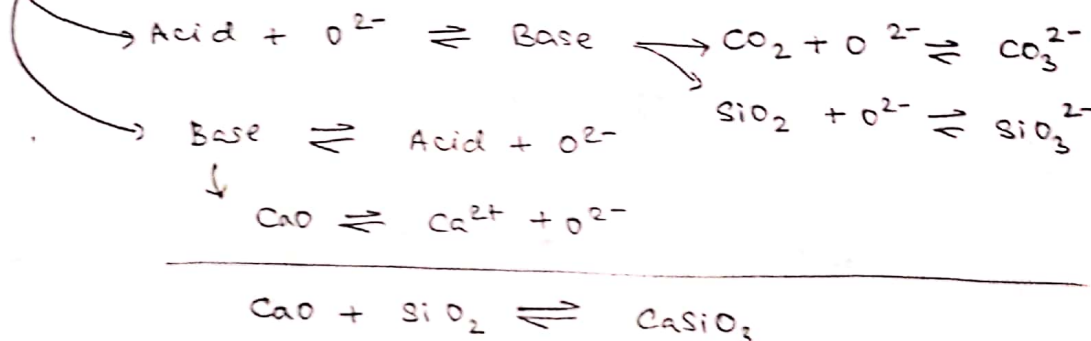 Acid + O²⁻ ⇌ Base → CO₂ + O²⁻ ⇌ CO₃²⁻
SiO₂ + O²⁻ ⇌ SiO₃²⁻
Base ⇌ Acid + O²⁻
↓
CaO ⇌ Ca²⁺ + O²⁻
CaO + SiO₂ ⇌ CaSiO₃